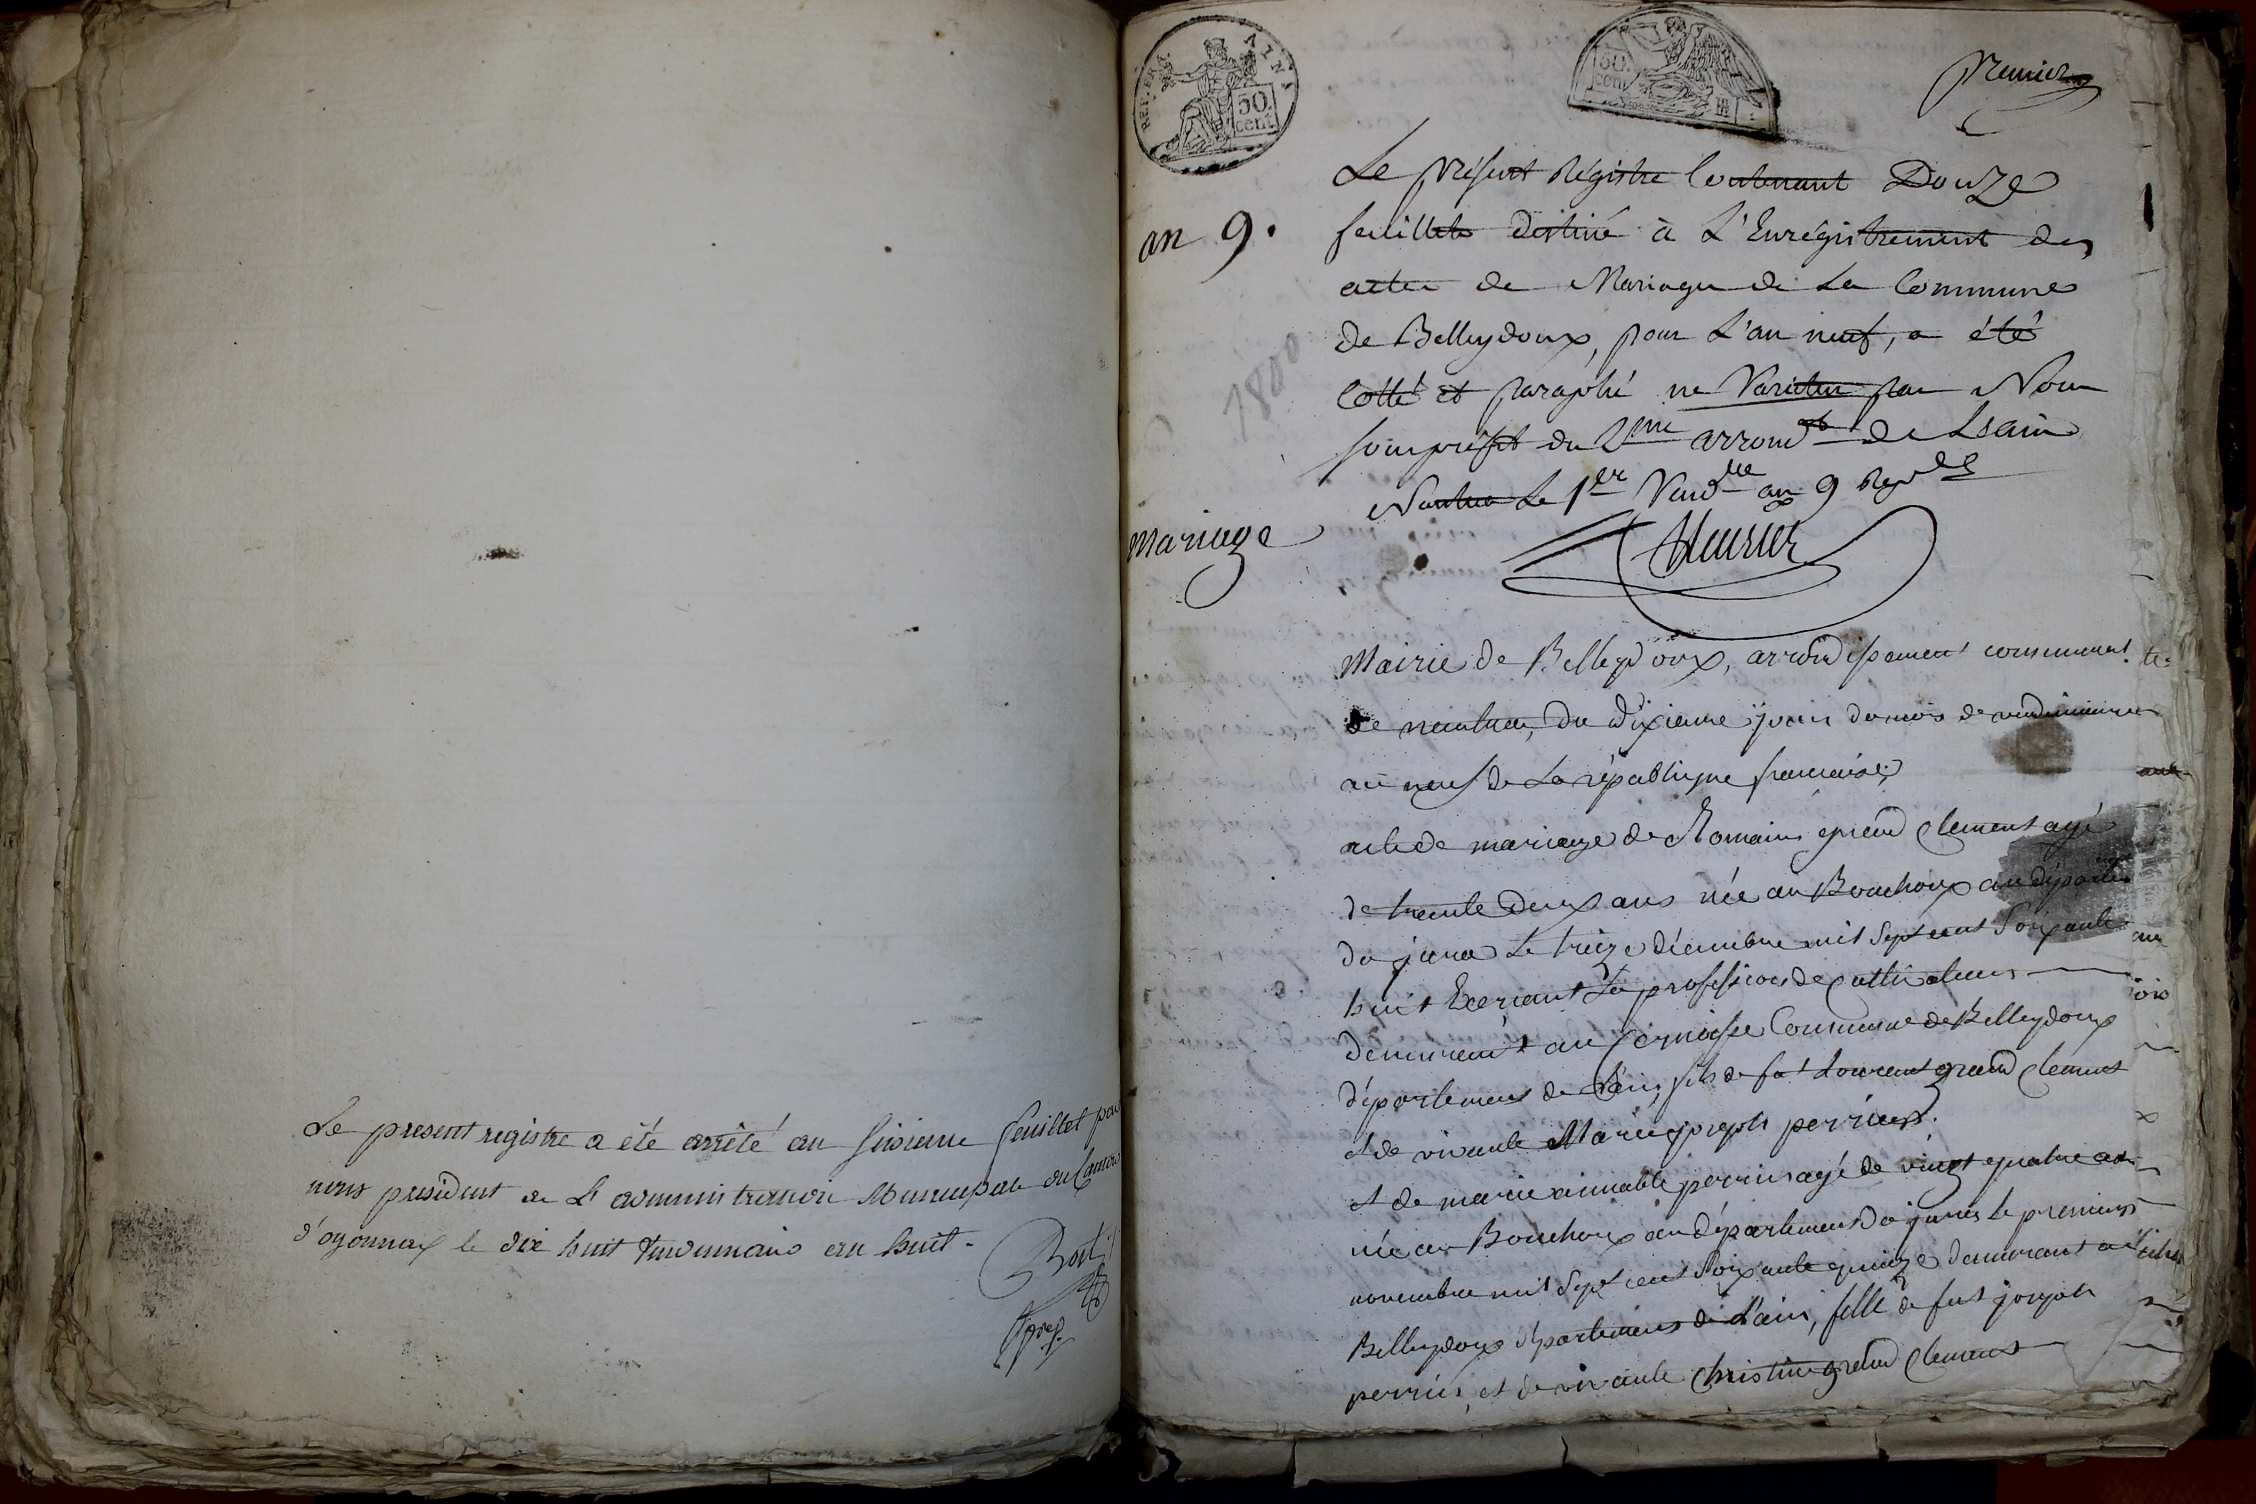 Le present registre a été arrêté au sixieme feuillet par
nous president de L'administration Municipale du Canton
d'oyonnax le dix huit Vendemiaire an huit.
REP. FRA.
AIN
50
cent
50
cent
premier
an 9.
1800
Le présent Régistre Contenant Douze
feuillets destiné à L'Enrégistrement des
actes de Mariages de La Commune
de Belleydoux, pour L'an neuf, a été
Cotté et paraphé ne Varietur par Nous
sousprefet du 2me arrondt de L'ain
Nantua Le 1er Vendre an 9 Repn
mariage
Mairie de Belleydoux, arrondissement communal
de nantua, Du Dixieme jour du mois de vendemiaire
an neuf de La république francaise,
acte de mariage de Romain grand Clement agé
de trente Deux ans née au Bouchoux au départe
du jura Le treize décembre mil Sept cent Soixante
huit Exerçant La profession de Cultivateur
demeurant au Commune de Belleydoux
département de L'ain, fils de fut Lourent grand Clement
et de vivante Marie joseph perrier.
et de marie aimable perrin agé de vingt quatre ans
née au Bouchoux au département du jura Le premier
novembre mil Sept cent Soixante quinze demeurant a
Belleydoux département de L'ain, fille de fut joseph
perrin, et de vivante Christine grand Clement